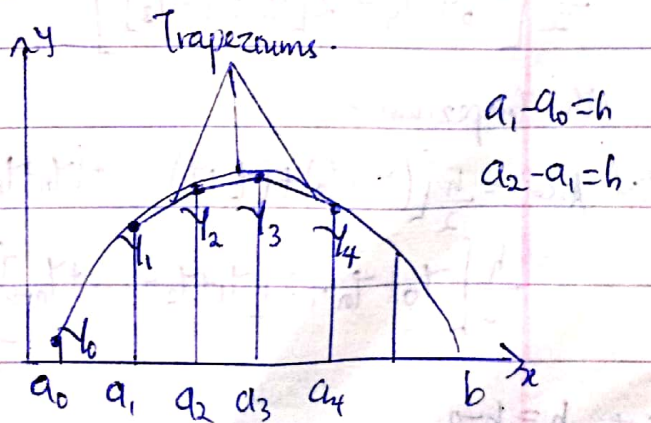 y
Trapezoums.
a₁-a₀=h
a₂-a₁=h.
y₀ y₁ y₂ y₃ y₄
a₀ a₁ a₂ a₃ a₄ b x